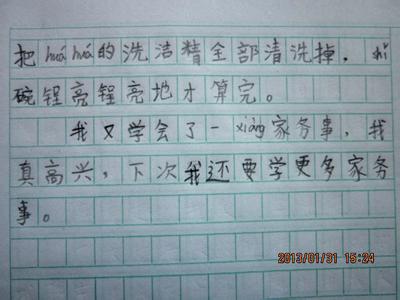 把huá huá的洗洁精全部清洗掉，shǐ
碗锃亮锃亮地才算完。
我又学会了一xiàng家务事，我
真高兴，下次我还要学更多家务
事。
2013/01/31 15:24